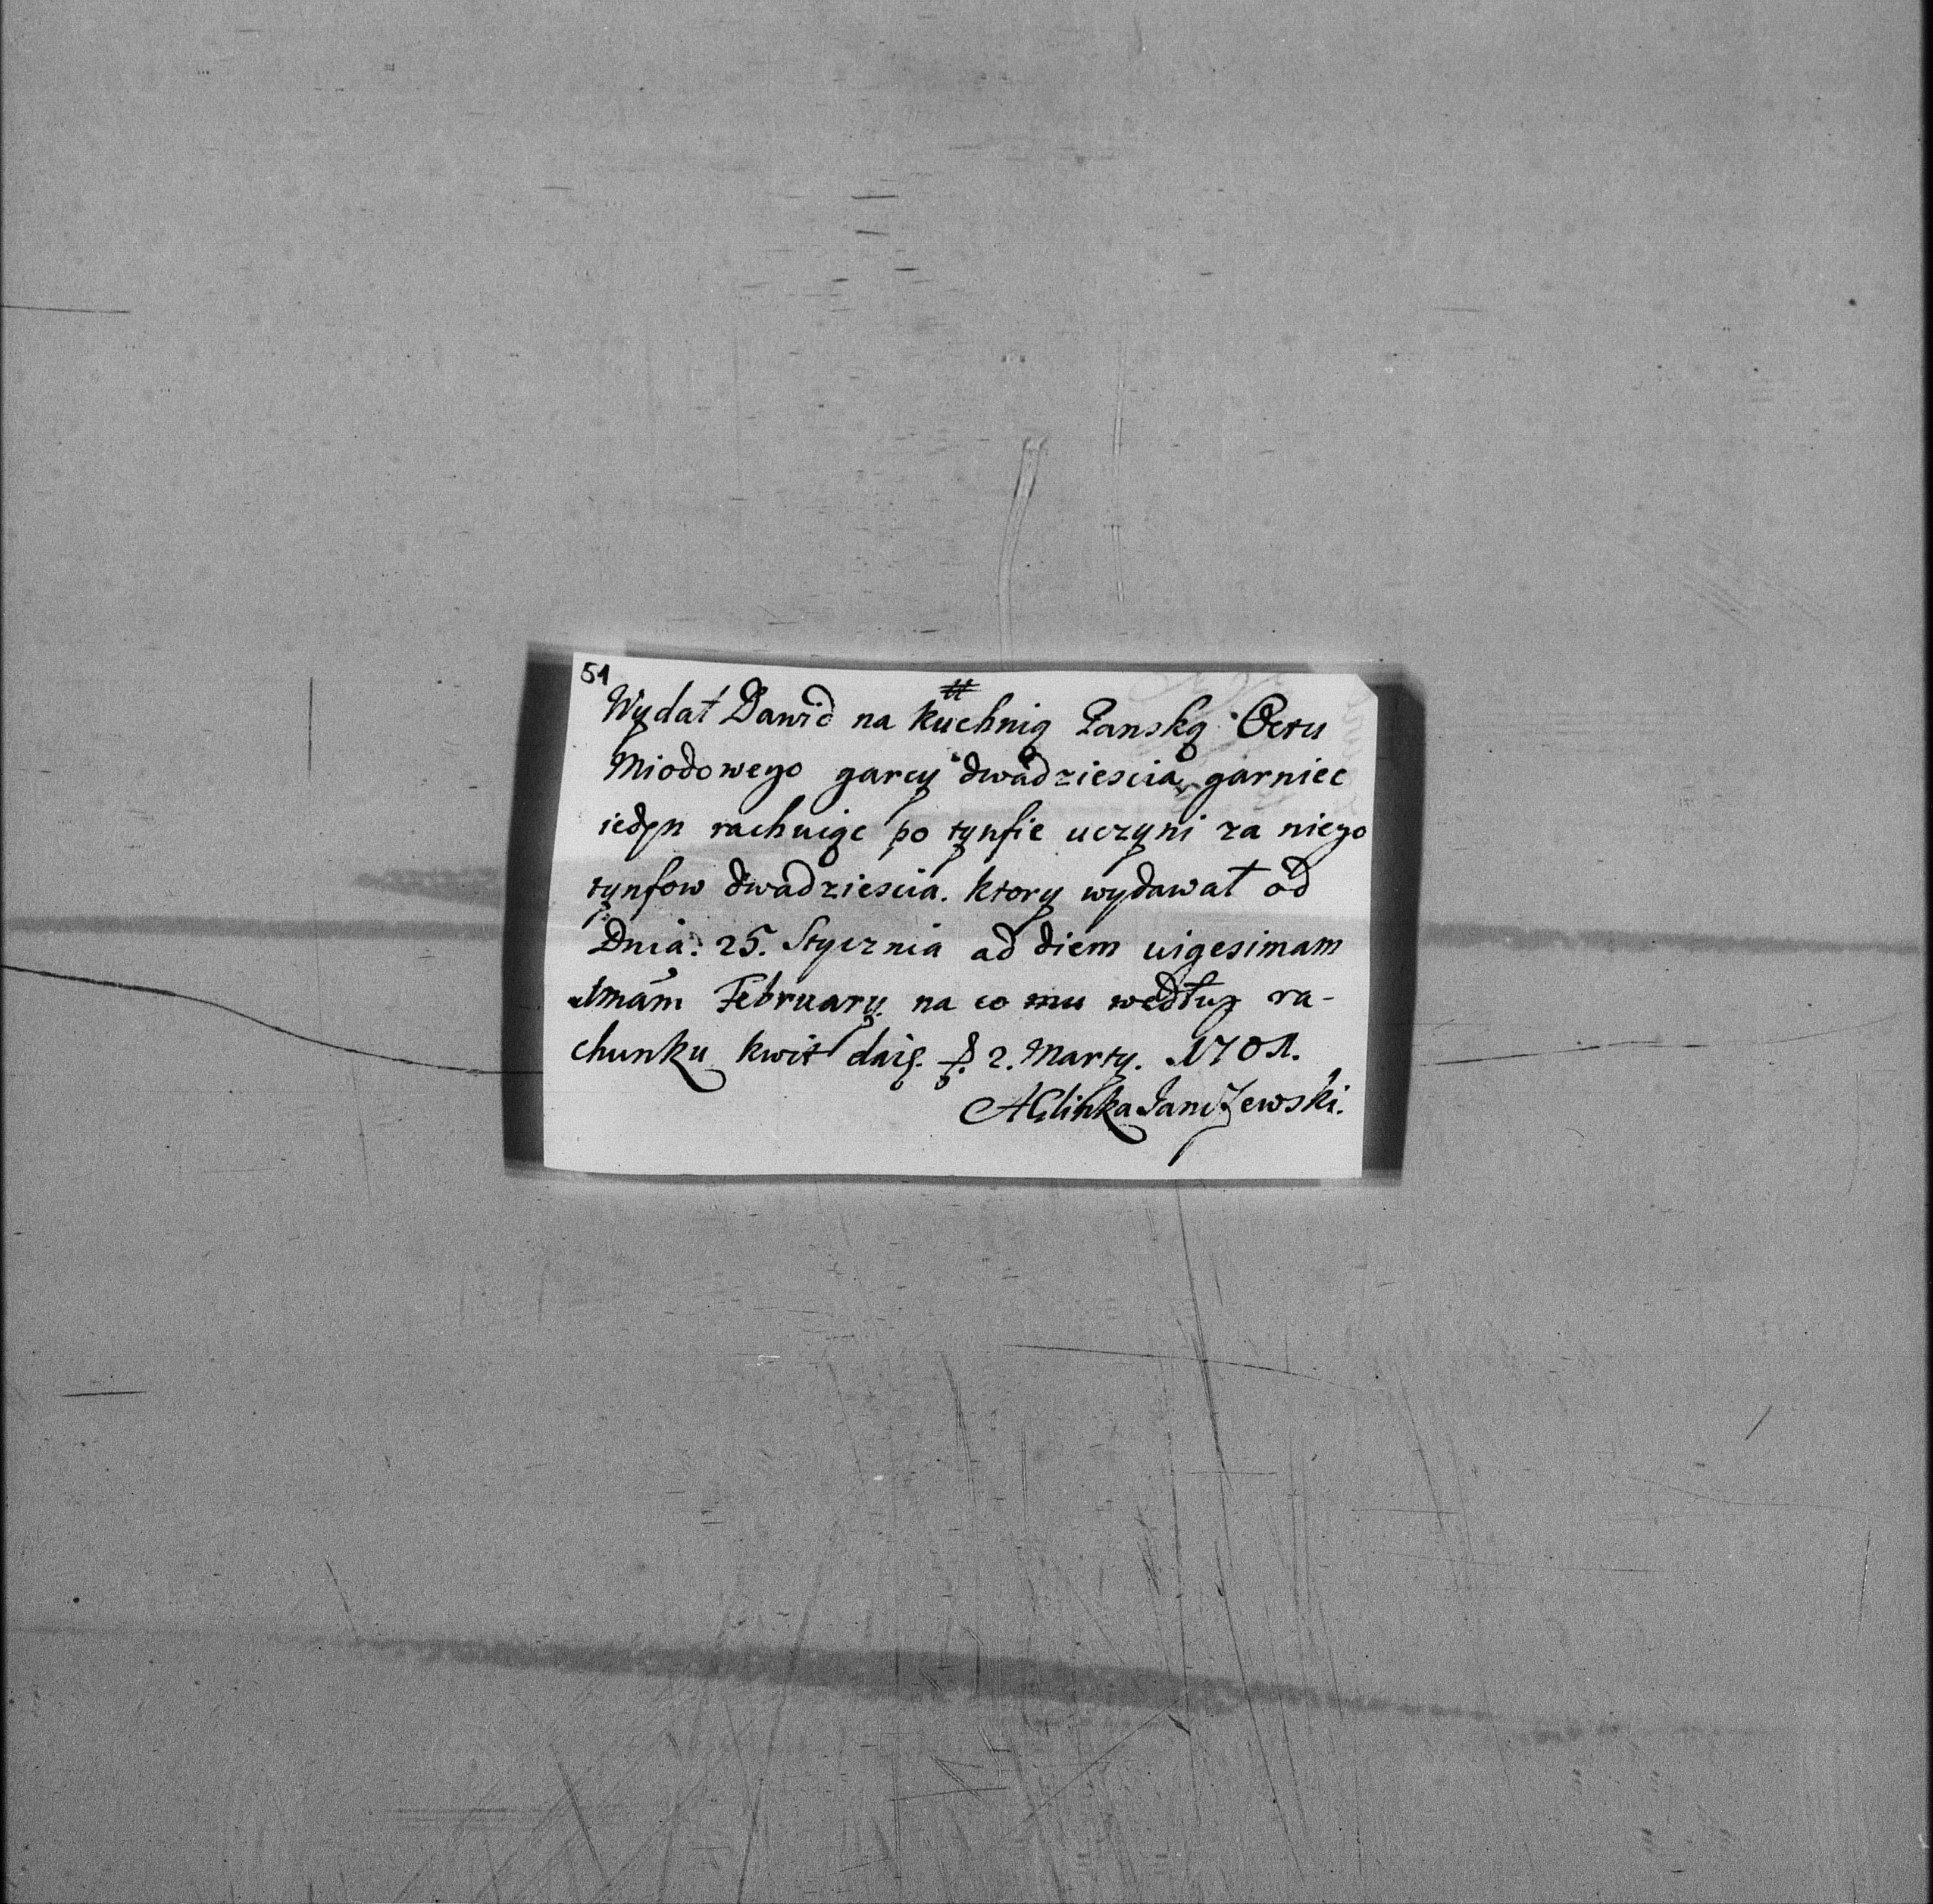 51
#
Wydał Dawid na kuchnią Panską Octu
Miodowego garcy dwadziescia, garniec
ieden rachuiąc po tynfie uczyni za niego
tynfow dwadziescia. ktory wydawał od
Dnia. 25. Stycznia ad diem uigesimam
1mam February. na co mu według ra-
chunku kwit daię. d. 2. Marty. 1701.
AGlinka Janiszewski.